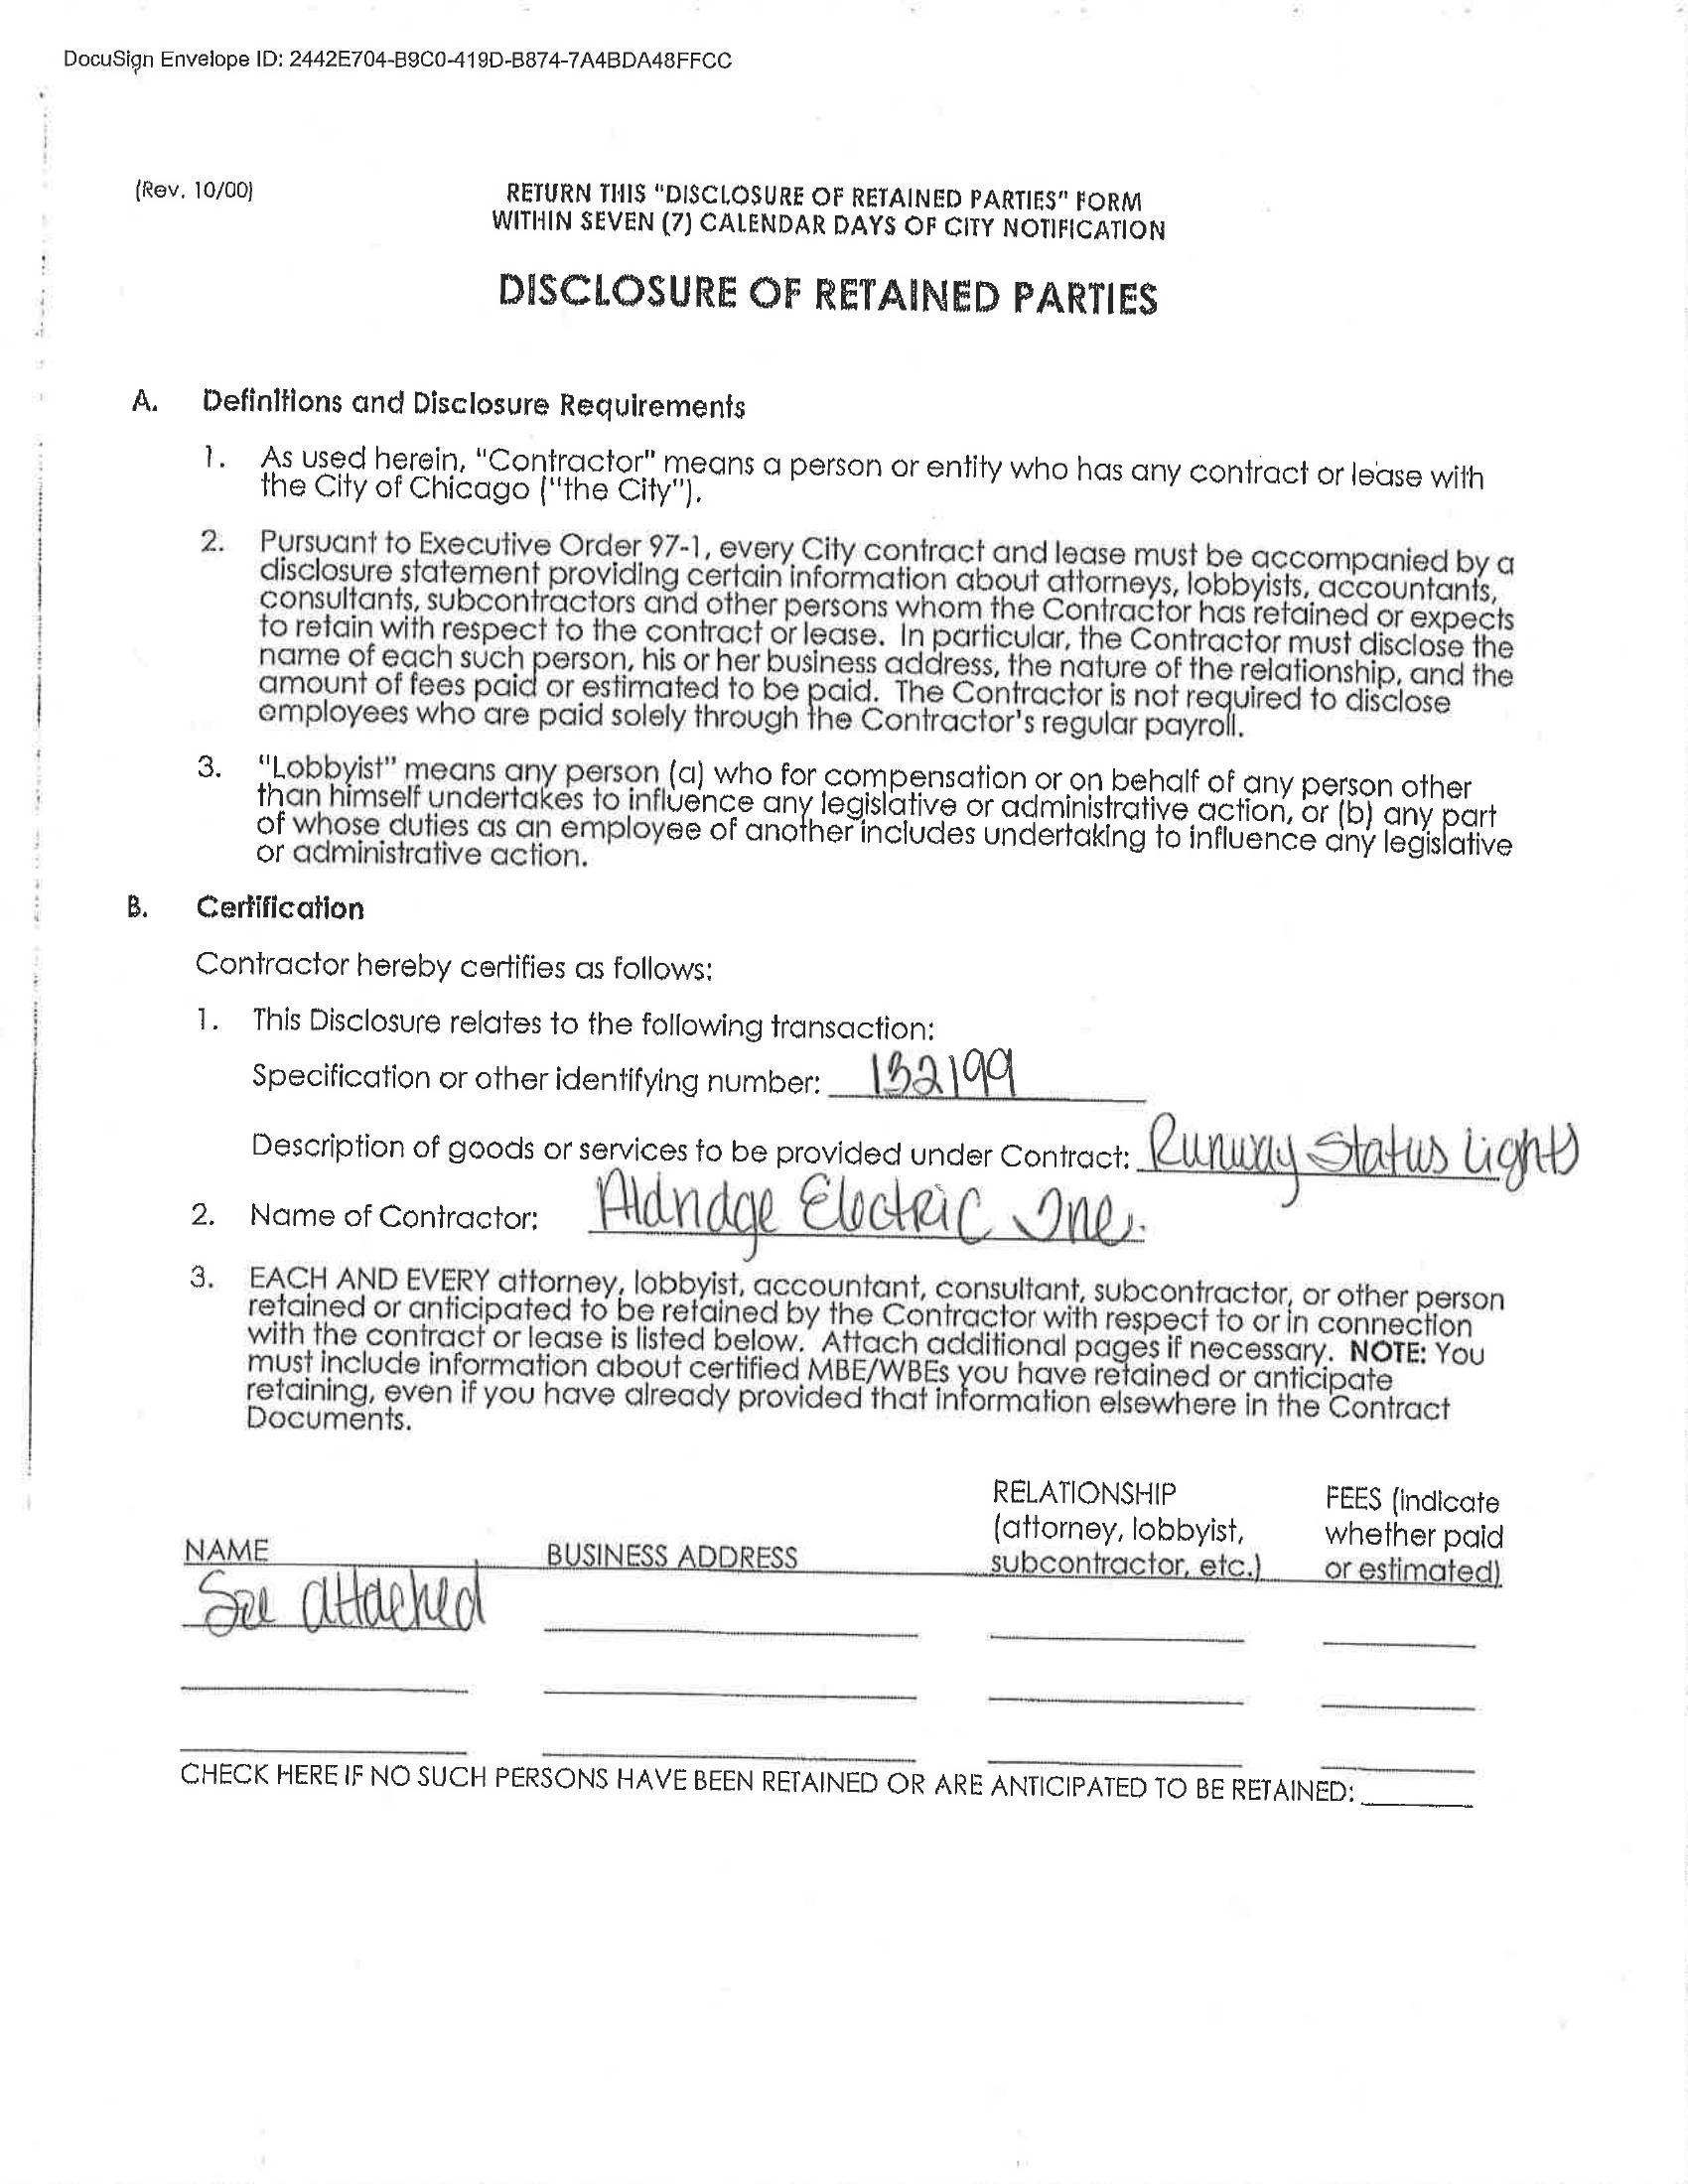 DocuSign Envelope ID: 2442E704-B9C0-419D-B874-7A4BDA48FFCC
(Rev. 10/00)
RETURN THIS "DISCLOSURE OF RETAINED PARTIES" FORM
WITHIN SEVEN (7) CALENDAR DAYS OF CITY NOTIFICATION
DISCLOSURE OF RETAINED PARTIES
A. Definitions and Disclosure Requirements
1. As used herein, "Contractor" means a person or entity who has any contract or lease with
the City of Chicago ("the City").
2. Pursuant to Executive Order 97-1, every City contract and lease must be accompanied by a
disclosure statement providing certain information about attorneys, lobbyists, accountants,
consultants, subcontractors and other persons whom the Contractor has retained or expects
to retain with respect to the contract or lease. In particular, the Contractor must disclose the
name of each such person, his or her business address, the nature of the relationship, and the
amount of fees paid or estimated to be paid. The Contractor is not required to disclose
employees who are paid solely through the Contractor's regular payroll.
3. "Lobbyist" means any person (a) who for compensation or on behalf of any person other
than himself undertakes to influence any legislative or administrative action, or (b) any part
of whose duties as an employee of another includes undertaking to influence any legislative
or administrative action.
B. Certification
Contractor hereby certifies as follows:
1. This Disclosure relates to the following transaction:
Specification or other identifying number: 132199
Description of goods or services to be provided under Contract: Runway Status Lights
2. Name of Contractor: Aldridge Electric Inc.
3. EACH AND EVERY attorney, lobbyist, accountant, consultant, subcontractor, or other person
retained or anticipated to be retained by the Contractor with respect to or in connection
with the contract or lease is listed below. Attach additional pages if necessary. NOTE: You
must include information about certified MBE/WBEs you have retained or anticipate
retaining, even if you have already provided that information elsewhere in the Contract
Documents.
RELATIONSHIP FEES (indicate
(attorney, lobbyist, whether paid
NAME BUSINESS ADDRESS subcontractor, etc.) or estimated)
See attached
CHECK HERE IF NO SUCH PERSONS HAVE BEEN RETAINED OR ARE ANTICIPATED TO BE RETAINED: